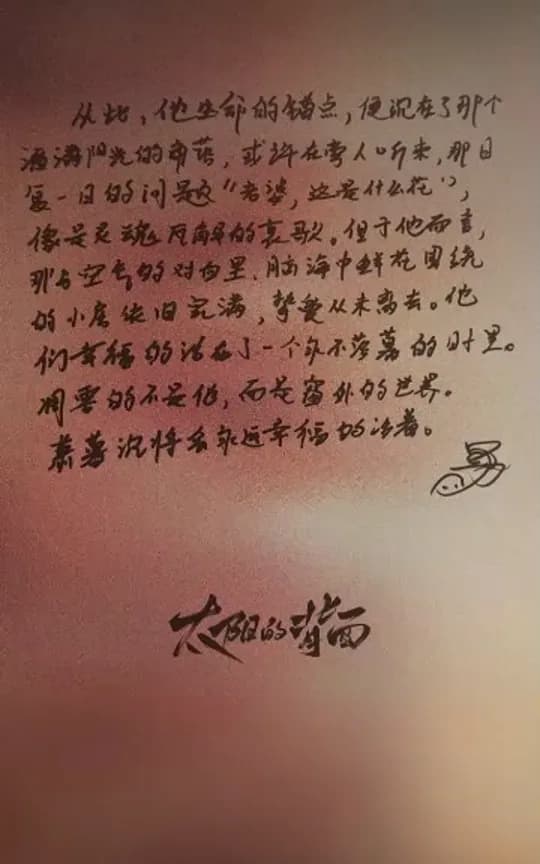 从此，他生命的锚点，便沉在了那个
洒满阳光的角落，或许在旁人听来，那日
复一日的问题"老婆，这是什么花"，
像是灵魂瓦解的哀歌。但于他而言，
那与空气的对白里，脑海中鲜花围绕
的小屋依旧完满，挚爱从未离去。他
们幸福的活在了一个永不落幕的时里。
凋零的不是他，而是窗外的世界。
慕善沉将会永远幸福的活着。
男
太阳的背面